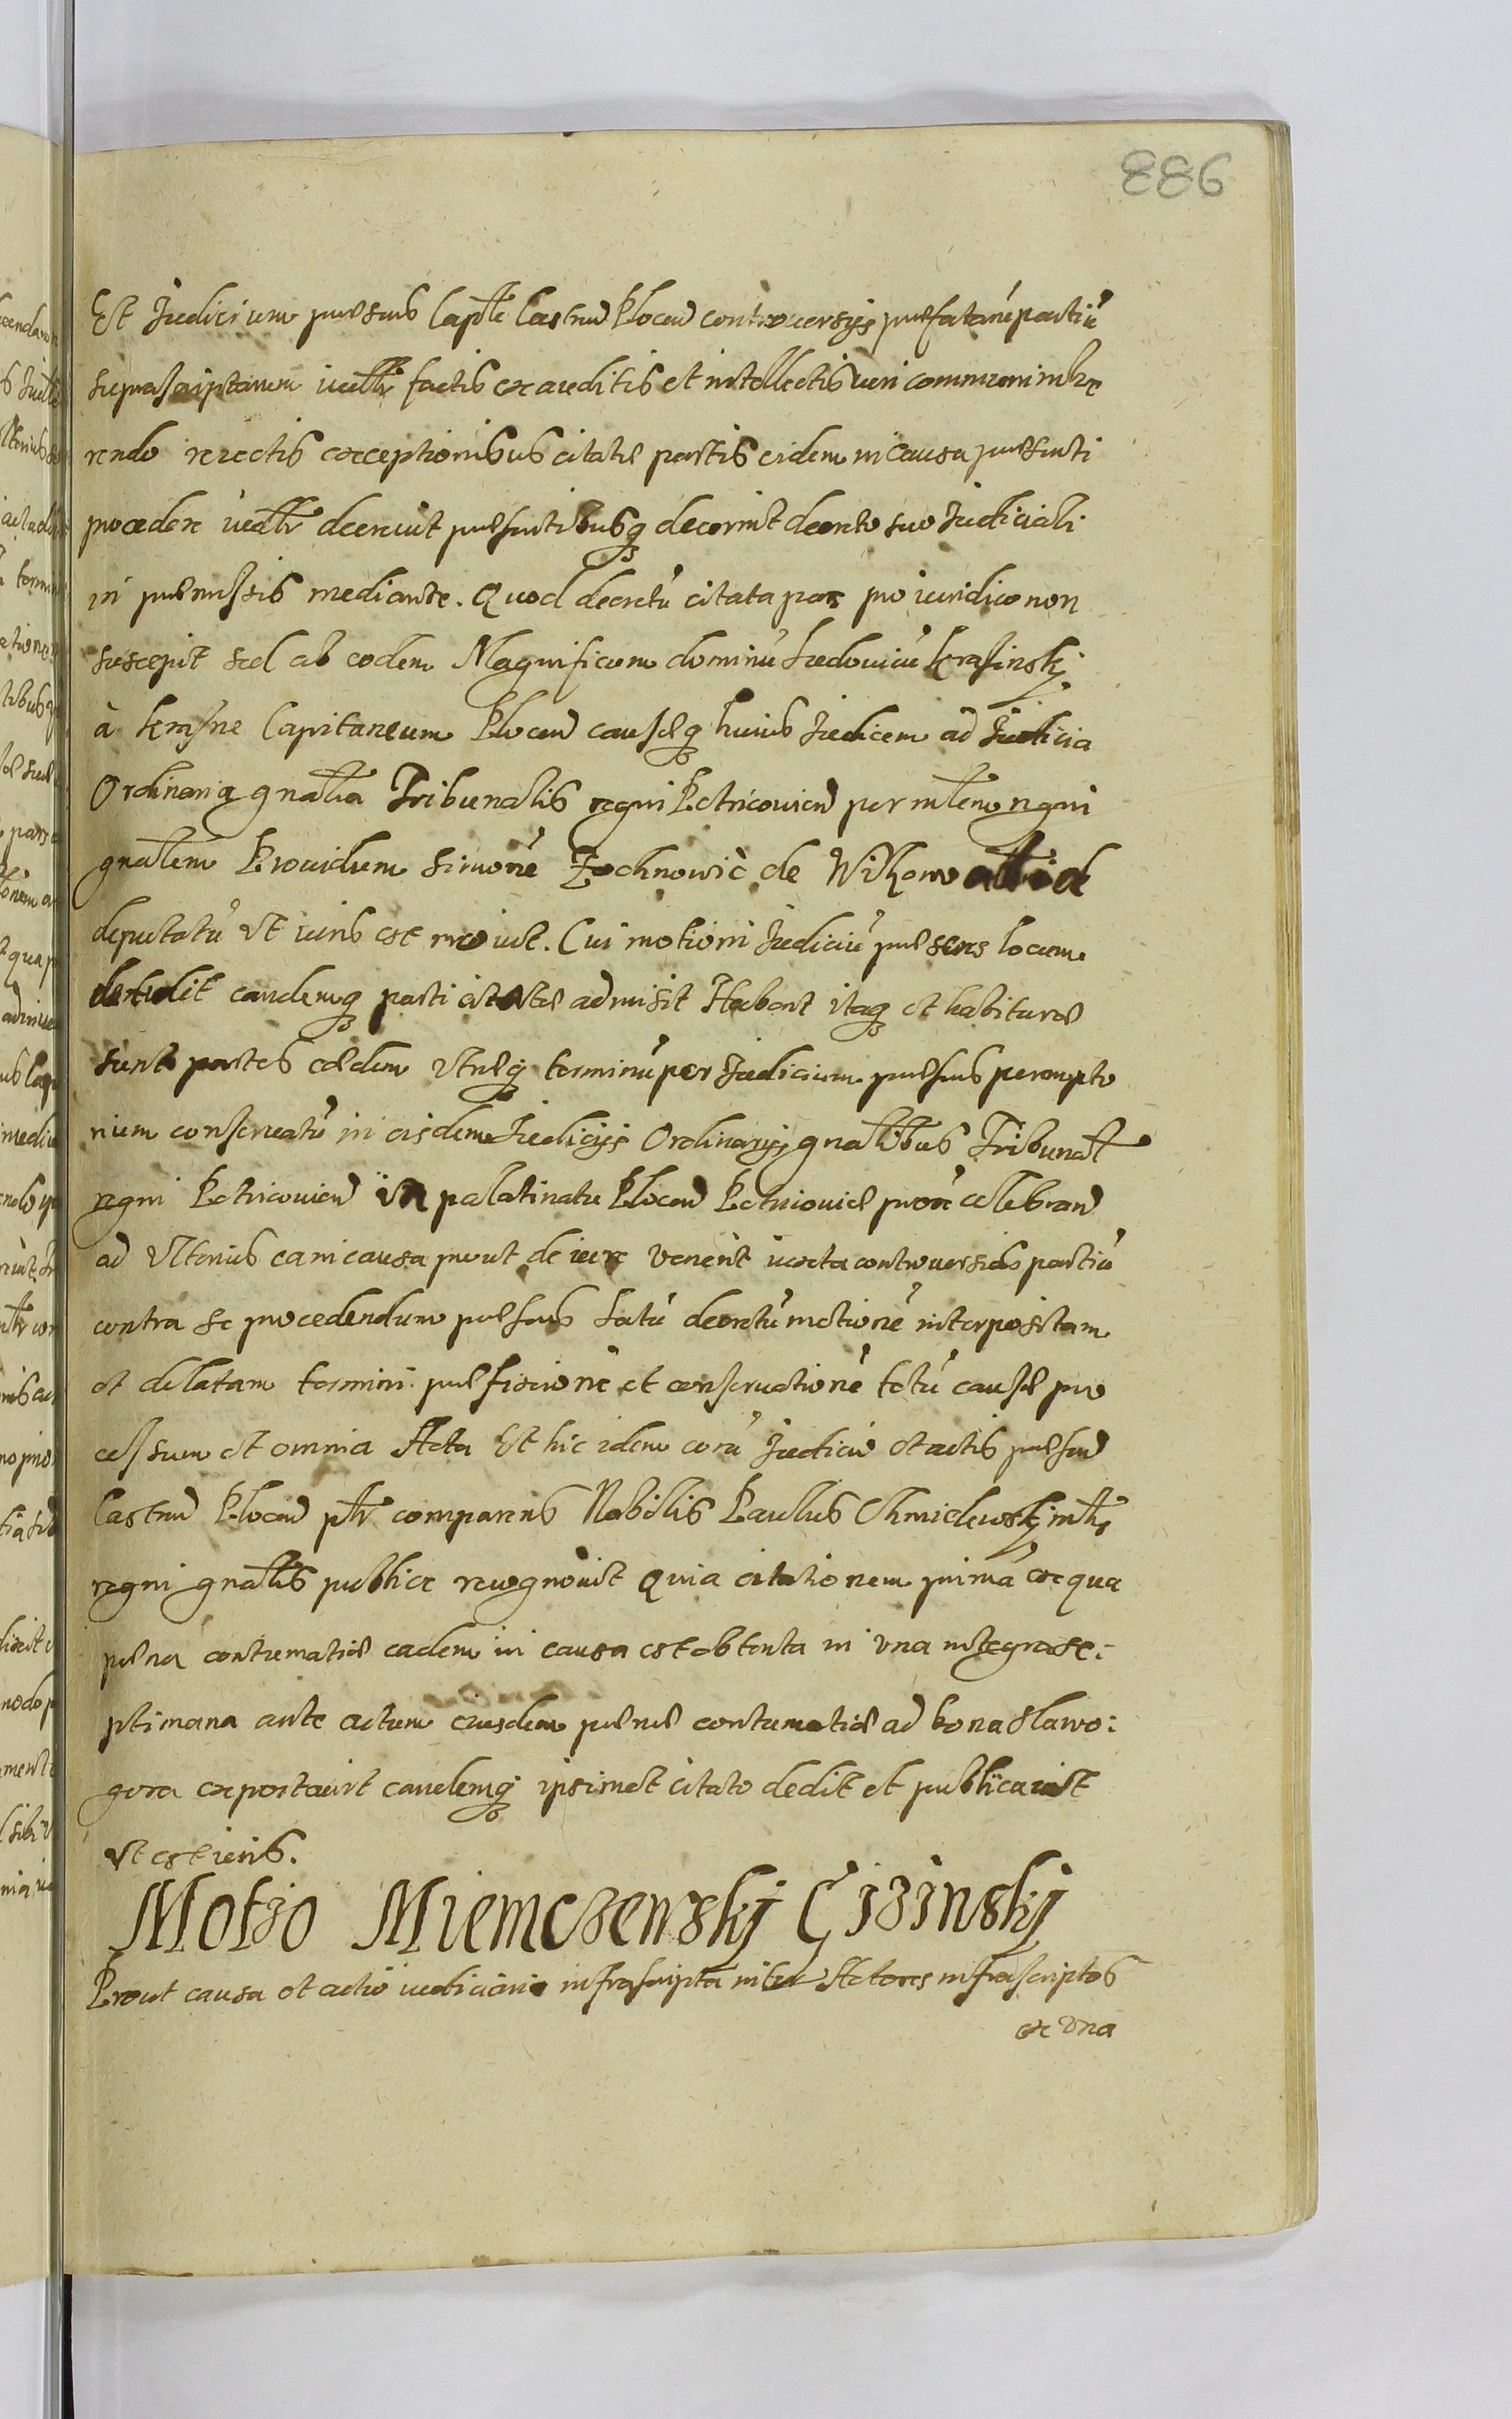 886
Et Iudicium praesens Capitle Castren Plocen controuersijs praefatarū partiū
suprascriptarum iudtr factis exauditis et intellectis iuri communi inhae
rendo reiectis exceptionibus citatae partis eidem in causa praesenti
procedere iudtr decreuit praesentibusq decernit decreto suo Iudiciali
in praemissis mediante. Quod decretū citata pars pro iuridico non
suscepit sed ab eodem Magnificum dominū Ludouicū Krasinskj
à Krasne Capitaneum Plocen causaeq huius Iudicem ad Iudicia
Ordinaria gnalia Tribunalis regni Petricouien per mtlem regni
gnalem Prouidum Simonē Zochnowic de Wilkowo
deputatū vt iuris est mouit. Cui motioni Iudiciū praesens locum
detulit eandemq parti citatae admisit Habent itaq et habiturae
sunt partes eaedem vtraeq terminū per Iudicium praesens perempto
rium conseruatū in eisdem Iudicijs Ordinarijs gnalibus Tribunal
regni Petricouien in palatinatu Plocen Petricouiae celebran
ad vlterius ea in causa prout de iure venerit iuxta controuersias partiū
contra se procedendum praesens latū decretū motionē interpositam
et delatam termini praefixionē et conseruationē totū causae pro
cessum et omnia Acta Et hic idem corā Iudicio et actis praesen
Castren Plocen ptr comparens Nobilis Paulus Chmielewskj mtls
regni gnalis publice recognouit Quia citationem primā ex qua
paena contumatiae eadem in causa est obtenta in vna integra se:
ptimana ante actum eiusdem paenae contumatiae ad bona Slawo:
gora exportauit eandemq ipsimet citato dedit et publicauit
vt est iuris.
Motio Miemczewskj Gizinskj
Prout causa et actio iudiciaria infrascripta inter Actores infrascriptos
ex vna